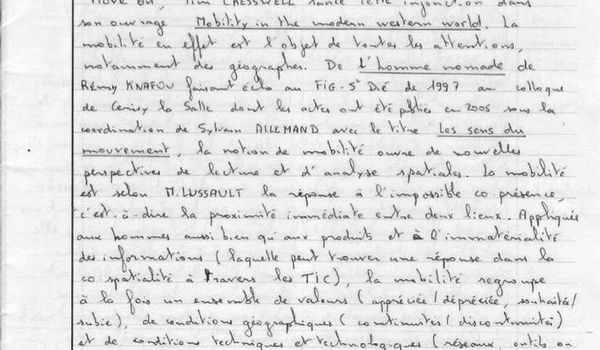 "Move on", Tim CRESSWELL cette injonction dans
son ouvrage Mobility in the modern western world. La
mobilité en effet est l'objet de toutes les attentions,
notamment des géographes. De L'homme nomade de
Rémy KNAFOU faisant écho au FIG-St Dié de 1997 au colloque
de Cerisy la Salle dont les actes ont été publiés en 2005 sous la
coordination de Sylvain ALLEMAND avec le titre Les sens du
mouvement, la notion de mobilité ouvre de nouvelles
perspectives de lecture et d'analyse spatiales. La mobilité
est selon M. LUSSAULT la réponse à l'impossible co présence,
c'est-à-dire la proximité immédiate entre deux lieux. Appliquée
aux hommes aussi bien qu'aux produits et à l'immatérialité
des informations (laquelle peut trouver une réponse dans la
co spatialité à travers les TIC), la mobilité regroupe
à la fois un ensemble de valeurs (appréciée/dépréciée, souhaitée/
subie), de conditions géographiques (continuités/discontinuités)
et de conditions techniques et technologiques (réseaux, outils ou